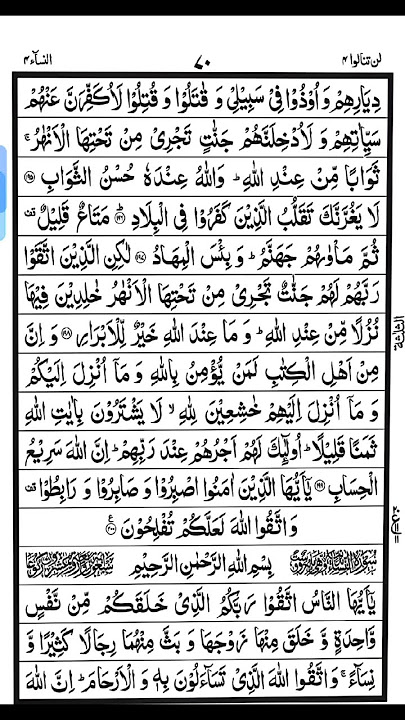 لن تنالوا ۴ ۷۰ النسآء ۴
دِیَارِهِمْ وَ اُوْذُوْا فِیْ سَبِیْلِیْ وَ قٰتَلُوْا وَ قُتِلُوْا لَاُكَفِّرَنَّ عَنْهُمْ
سَیِّاٰتِهِمْ وَ لَاُدْخِلَنَّهُمْ جَنّٰتٍ تَجْرِیْ مِنْ تَحْتِهَا الْاَنْهٰرُ ۚ
ثَوَابًا مِّنْ عِنْدِ اللّٰهِ ؕ وَاللّٰهُ عِنْدَهٗ حُسْنُ الثَّوَابِ ﴿۱۹۵﴾
لَا یَغُرَّنَّكَ تَقَلُّبُ الَّذِیْنَ كَفَرُوْا فِی الْبِلَادِ ﴿۱۹۶﴾ مَتَاعٌ قَلِیْلٌ ۫
ثُمَّ مَاْوٰىهُمْ جَهَنَّمُ ؕ وَ بِئْسَ الْمِهَادُ ﴿۱۹۷﴾ لٰكِنِ الَّذِیْنَ اتَّقَوْا
رَبَّهُمْ لَهُمْ جَنّٰتٌ تَجْرِیْ مِنْ تَحْتِهَا الْاَنْهٰرُ خٰلِدِیْنَ فِیْهَا
نُزُلًا مِّنْ عِنْدِ اللّٰهِ ؕ وَ مَا عِنْدَ اللّٰهِ خَیْرٌ لِّلْاَبْرَارِ ﴿۱۹۸﴾ وَ اِنَّ
مِنْ اَهْلِ الْكِتٰبِ لَمَنْ یُّؤْمِنُ بِاللّٰهِ وَ مَاۤ اُنْزِلَ اِلَیْكُمْ
وَ مَاۤ اُنْزِلَ اِلَیْهِمْ خٰشِعِیْنَ لِلّٰهِ ۙ لَا یَشْتَرُوْنَ بِاٰیٰتِ اللّٰهِ
ثَمَنًا قَلِیْلًا ؕ اُولٰٓىِٕكَ لَهُمْ اَجْرُهُمْ عِنْدَ رَبِّهِمْ ؕ اِنَّ اللّٰهَ سَرِیْعُ
الْحِسَابِ ﴿۱۹۹﴾ یٰۤاَیُّهَا الَّذِیْنَ اٰمَنُوا اصْبِرُوْا وَ صَابِرُوْا وَ رَابِطُوْا ۫
وَ اتَّقُوا اللّٰهَ لَعَلَّكُمْ تُفْلِحُوْنَ ﴿۲۰۰﴾ ع
بِسْمِ اللّٰهِ الرَّحْمٰنِ الرَّحِیْمِ
یٰۤاَیُّهَا النَّاسُ اتَّقُوْا رَبَّكُمُ الَّذِیْ خَلَقَكُمْ مِّنْ نَّفْسٍ
وَّاحِدَةٍ وَّ خَلَقَ مِنْهَا زَوْجَهَا وَ بَثَّ مِنْهُمَا رِجَالًا كَثِیْرًا وَّ
نِسَآءً ۚ وَ اتَّقُوا اللّٰهَ الَّذِیْ تَسَآءَلُوْنَ بِهٖ وَ الْاَرْحَامَ ؕ اِنَّ اللّٰهَ
الثلٰثة